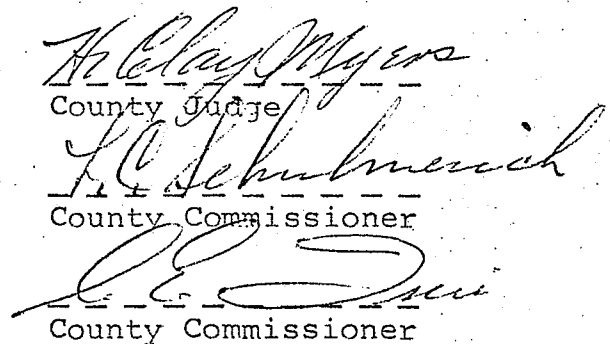 H Clay Myers
County Judge
County Commissioner
County Commissioner